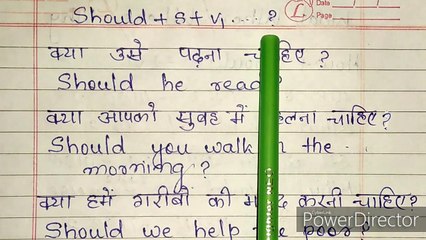 Should + S + V₁ .... ?
Date
Page
क्या उसे पढ़ना चाहिए ?
Should he read?
क्या आपको सुबह में चाहिए?
Should you walk the
morning ?
क्या हमें गरीबों की करनी चाहिए?
Should we help poor?
PowerDirector